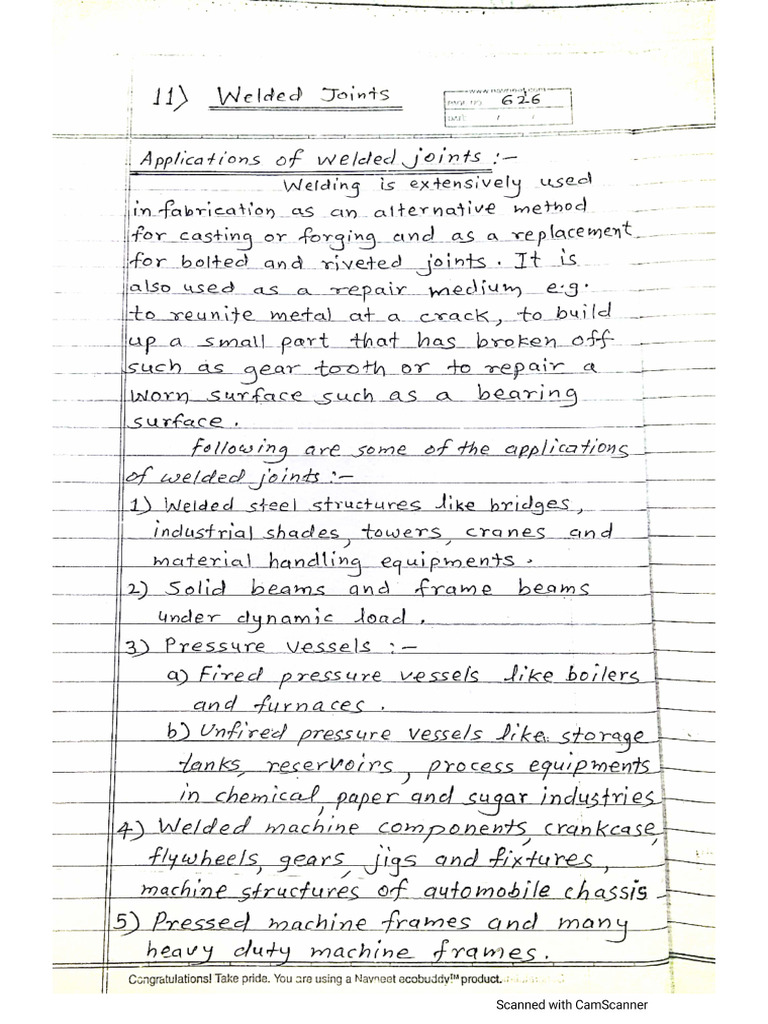 11) Welded Joints
www.navneet.com
PAGE NO. 626
DATE: / /
Applications of welded joints :-
Welding is extensively used
in fabrication as an alternative method
for casting or forging and as a replacement
for bolted and riveted joints. It is
also used as a repair medium e.g.
to reunite metal at a crack, to build
up a small part that has broken off
such as gear tooth or to repair a
worn surface such as a bearing
surface.
Following are some of the applications
of welded joints :-
1) Welded steel structures like bridges,
industrial shades, towers, cranes and
material handling equipments.
2) Solid beams and frame beams
under dynamic load.
3) Pressure vessels :-
a) Fired pressure vessels like boilers
and furnaces.
b) Unfired pressure vessels like storage
tanks, reservoirs, process equipments
in chemical, paper and sugar industries
4) Welded machine components, crankcase,
flywheels, gears, jigs and fixtures,
machine structures of automobile chassis
5) Pressed machine frames and many
heavy duty machine frames.
Congratulations! Take pride. You are using a Navneet ecobuddy™ product.
Scanned with CamScanner